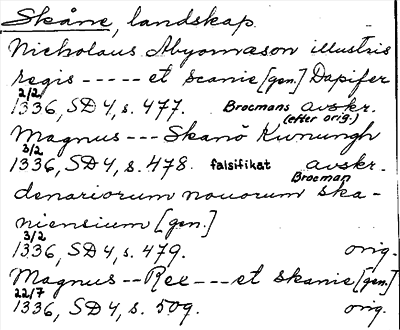 Skåne, landskap.
Nicholaus Abyornæson illustris
regis ----- et scanie [gen.] Dapifer
2/2
1336, SD 4, s. 477. Brocmans avskr.
(efter orig.)
Magnus --- Skanö Kunungh
3/2
1336, SD 4, s. 478. falsifikat avskr.
Brocman
denariorum nouorum ska-
niensium [gen.]
3/2
1336, SD 4, s. 479. orig.
Magnus -- Rex --- et skanie [gen.]
22/7
1336, SD 4, s. 509. orig.